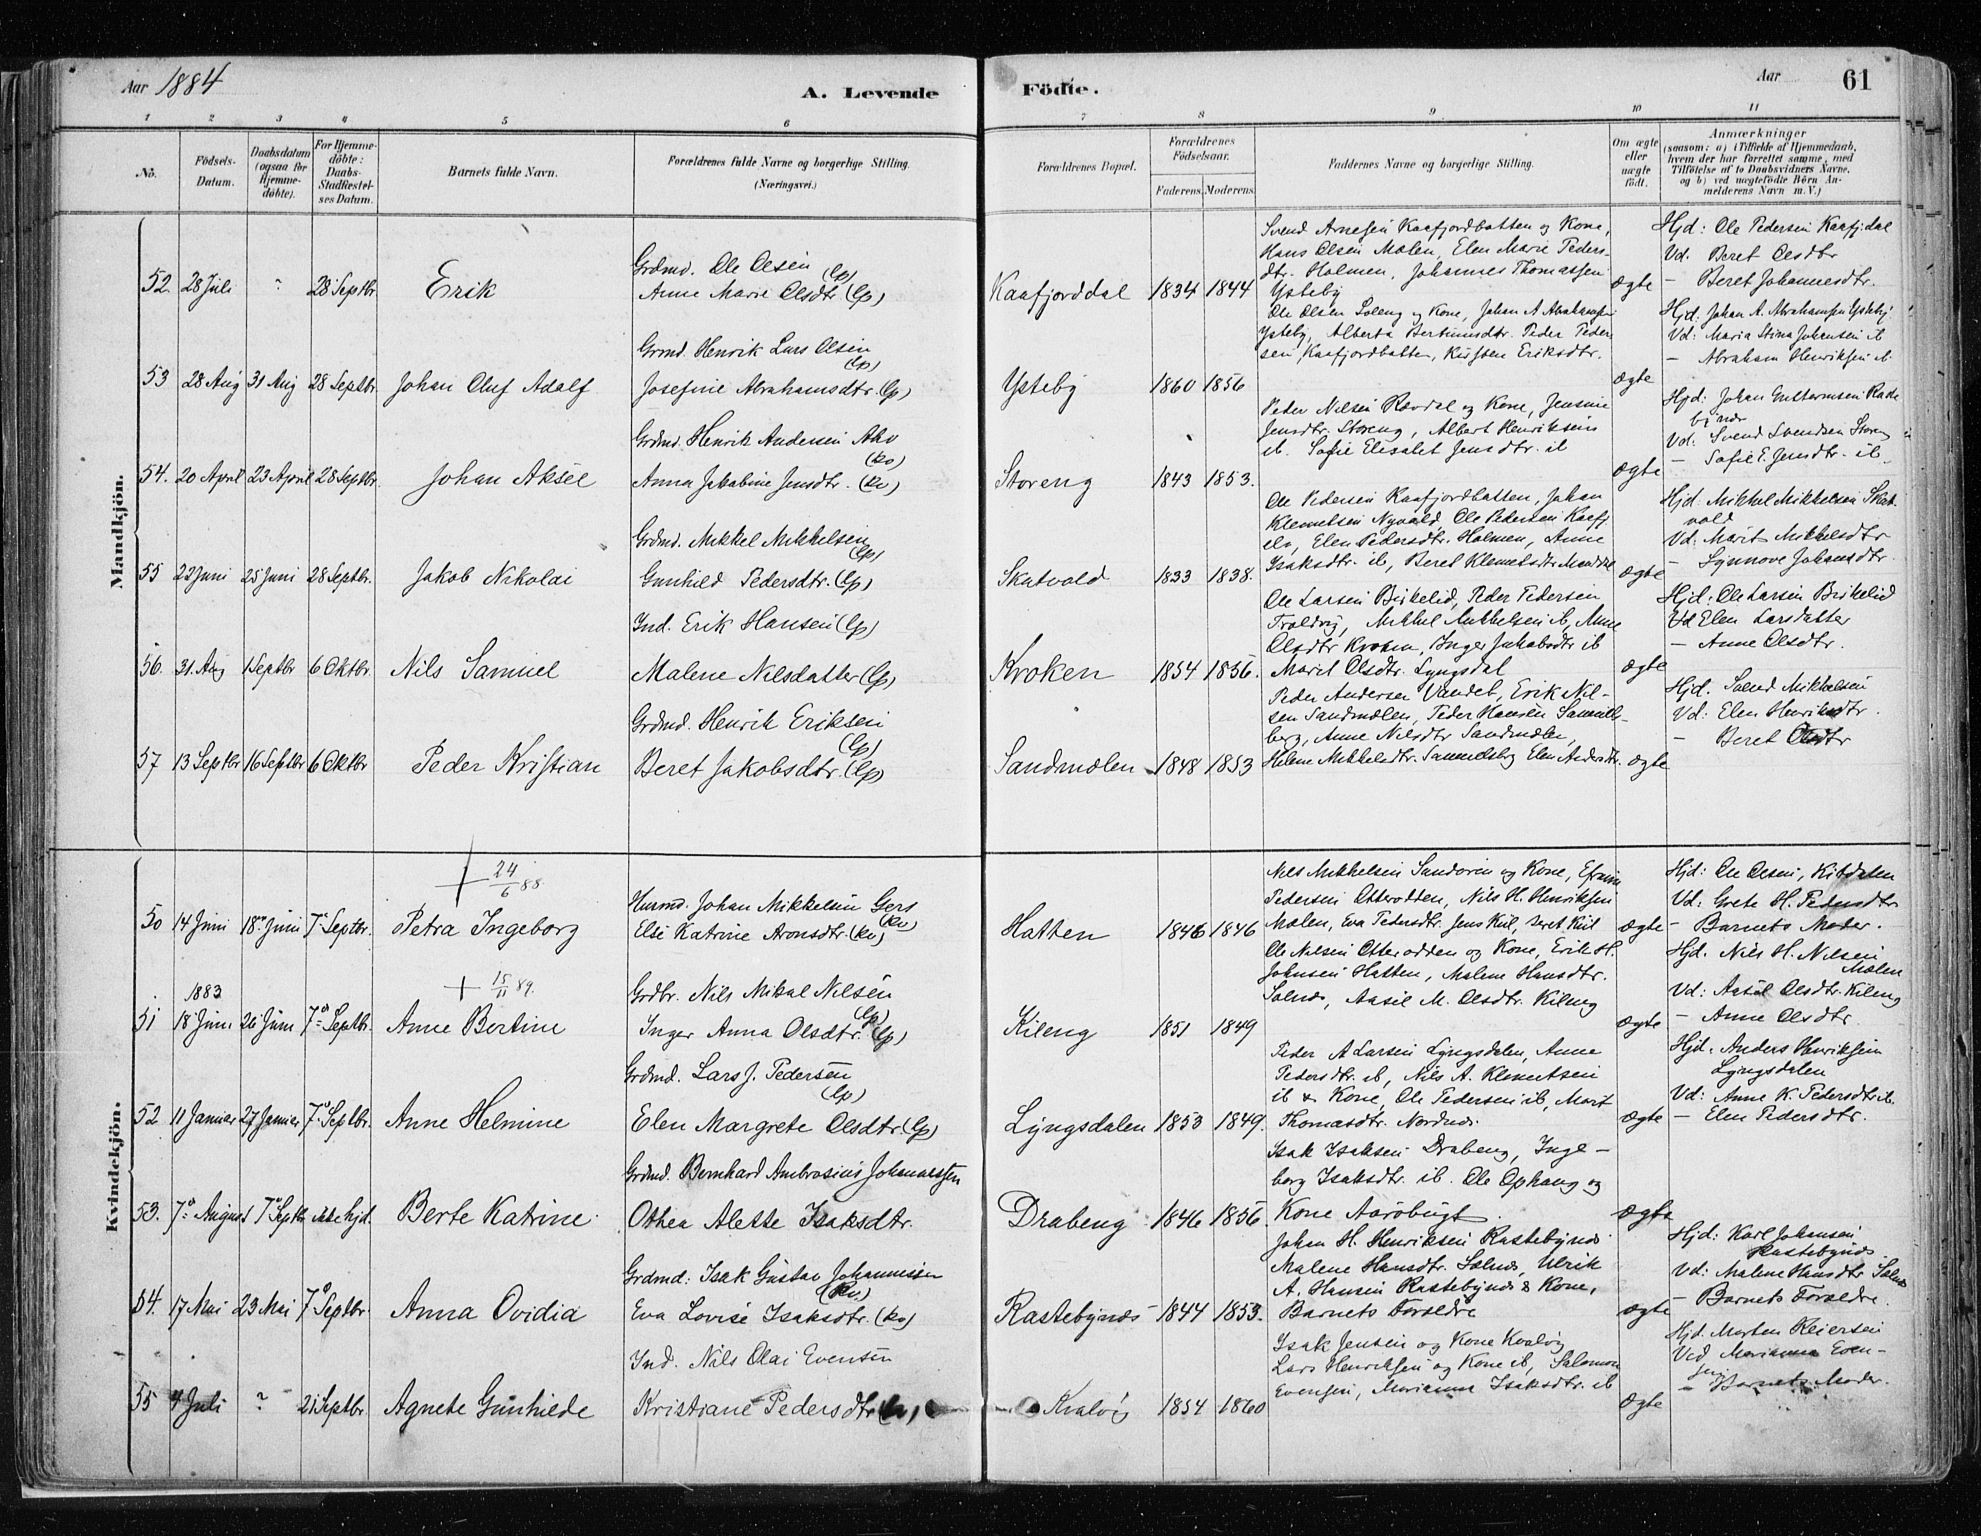 Aar 1884
A. Levende
Födte.
Aar
61
1 2 3 4 5 6 7 8 9 10 11
No.
Födsels-
Datum.
Daabsdatum
(ogsaa for
Hjemme-
döbte).
For Hjemme-
döbte:
Daabs-
Stadfæstel-
ses Datum.
Barnets fulde Navn.
Forældrenes fulde Navne og borgerlige Stilling.
(Næringsvei.)
Forældrenes Bopæl.
Forældrenes
Födselsaar.
Faderens. Moderens.
Faddernes Navne og borgerlige Stilling.
Om ægte
eller
uægte
født.
Anmærkninger
(saasom: a) i Tilfælde af Hjemmedaab,
hvem der har forrettet samme, med
Tilföielse af to Daabsvidners Navne,
og b) ved uægtefödte Börn An-
melderens Navn m. V.)
Mandkjön.
52. 28 Juli " 28 Septbr Erik
Grdmd. Ole Olsen (lp)
Anne Marie Olsdtr (lp)
Kaafjorddal 1834 1844
Svend Arnesen Kaafjordbotten og Kone,
Hans Olsen Molen, Elen Marie Peders-
dtr. Holmen, Johannes Thomassen
Ysteby
ægte
Hjd: Ole Pedersen Kaafjdal
Vd. Beret Olsdtr
— Beret Johannesdtr.
53 28 Aug 31 Aug 28 Septbr. Johan Oluf Adolf
Grmd. Henrik Lars Olsen (lp)
Josefine Abrahamsdtr. (lp)
Ysteby 1860 1856
Ole Olsen Soleng og Kone, Johan A Abrahamsen
Ysteby, Alberta Bertinusdtr. Peder Peder
sen Kaafjordbotten, Kirsten Eriksdtr.
ægte
Hjd: Johan A. Abrahamsen Ysteby
Vd: Maria Stina Johnsen ib
— Abraham Henriksen ib
54. 20 April 23 April 28 Septbr. Johan Aksel
Grdmd. Henrik Andersen Aho (kv)
Anna Jakobine Jensdtr. (kv)
Storeng 1843 1853.
Peder Nilsen Rovdal og Kone, Jensine
Jensdtr. Storeng, Albert Henriksen
ib. Sofie Elisabet Jensdtr. ib
ægte
Vd. Svend Svendsen Storeng
— Sofie E. Jensdtr. ib.
55 22 Juni 25 Juni 28 Septbr. Jakob Nikolai
Grdmd. Mikkel Mikkelsen (lp)
Gunhild Pedersdtr. (lp)
Skatvold 1833 1838.
Ole Pedersen Kaafjordbotten, Johan
Klemetsen Nyvold, Ole Pedersen Kaafj
elv, Elen Pedersdtr. Holmen, Anne
Isaksdtr. ib, Beret Klemetsdtr Manddal
ægte
Hjd. Mikkel Mikkelsen Skat-
vold
Vd. Marit Mikkelsdtr
— Synnove Johansdtr.
56. 31 Aug 1 Septbr 6 Oktbr. Nils Samuel
Ind. Erik Hansen (lp)
Malene Nilsdatter (lp)
Kroken 1854 1856.
Ole Larsen Birkelid, Peder Pedersen
Troldvig, Mikkel Mikkelsen ib, Anne
Olsdtr Kroken, Inger Jakobsdtr ib
Marit Olsdtr. Lyngsdal
ægte
Hjd. Ole Larsen Birkelid
Vd Elen Larsdatter
— Anne Olsdtr.
57 13 Septbr 16 Septbr 6 Oktbr Peder Kristian
Grdmd. Henrik Eriksen (lp)
Beret Jakobsdtr. (lp)
Sandmælen 1848 1853
Peder Andersen Vandet, Erik Nil-
sen Sandmælen, Peder Hansen Samuels-
berg, Anne Nilsdtr Sandmælen,
Helene Mikkelsdtr. Samuelsbrg Elen Andersdtr.
ægte
Hjd. Svend Mikkelsen
Vd: Elen Henriksdtr.
— Beret Olsdtr
Kvindekjön.
+ 24/6 88
50 14 Juni 18de Juni 7de Septbr. Petra Ingeborg
Husmd. Johan Mikkelsen Gers (kv)
Else Katrine Aronsdtr. (kv)
Hatten 1846 1846
Nils Mikkelsen Sandøren og Kone, Efraim
Pedersen Otterodden, Nils H. Henriksen
Mælen, Eva Pedersdtr. Jens Kiil, Beret Kiil
ægte
Hjd: Ole Olsen, Kitdalen
Vd: Grete H. Pedersdtr
— Barnets Moder.
+ 15/11 89.
1883
51 18 Juni 26 Juni 7de Septbr. Anne Bertine
Grdbr. Nils Mikal Nilsen (lp)
Inger Anna Olsdtr. (lp)
Kileng 1851 1849
Ole Nilsen Otterodden og Kone, Erik H.
Johnsen Hatten, Malene Hansdtr.
Solnæs, Aasil M. Olsdtr. Kileng
ægte
Hjd. Nils H. Nilsen
Mælen
Vd: Aasil Olsdtr. Kileng
— Anne Olsdtr.
52 11 Januar 27 Januar 7de Septbr. Anne Helmine
Grdmd. Lars J. Pedersen (lp)
Elen Margrete Olsdtr (lp)
Lyngsdalen 1853 1849.
Peder A Larsen Lyngsdalen, Anne
Pedersdtr. ib, Nils A. Klemetsen
ib & Kone, Ole Pedersen ib, Marit
Thomasdtr. Nordnæs.
ægte
Hjd. Anders Henriksen
Lyngsdalen
Vd: Anne K. Pedersdtr ib.
— Elen Pedersdtr.
53. 7de August 7de Septbr ikke hjd. Berte Katrine.
Grdmd. Bernhard Ambrosius Johannessen
Othea Alette Isaksdtr.
Drabeng 1846 1856.
Isak Isaksen Drabeng, Inge-
borg Isaksdtr. ib. Ole Ophaug og
Kone Aarøbugt.
ægte
54. 17 Mai 23 Mai 7de Septbr. Anna Ovidia
Grdmd: Isak Gustav Johannesen (kv)
Eva Lovise Isaksdtr. (kv)
Rastebynæs 1844 1853.
Johan H. Henriksen Rastebynæs
Malene Hansdtr. Solnæs, Ulrik
A. Hansen Rastebynæs & Kone,
Barnets Forældre
ægte
Hjd: Karl Johansen
Rastebynæs.
Vd: Malene Hansdtr. Solnæs
— Barnets Forældre.
55 4 Juli ? 21 Septbr. Agnete Gunhilde
Ind. Nils Olai Evensen
Kristiane Pedersdtr
Kvaløy 1854 1860
Isak Jensen og Kone Kvaløy
Lars Henriksen og Kone ib, Salomon
Evensen, Marianna Isaksdtr. ib
ægte
Hjd. Morten Reiersen
Vid. Marianna Even-
sen
— Barnets Moder.